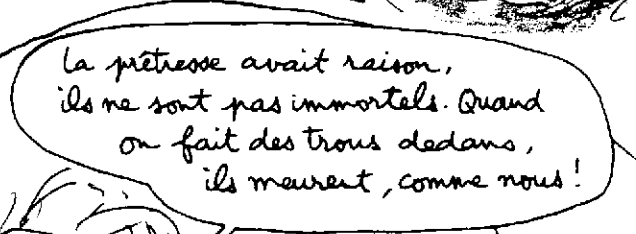 la prêtresse avait raison,
ils ne sont pas immortels. Quand
on fait des trous dedans,
ils meurent, comme nous !